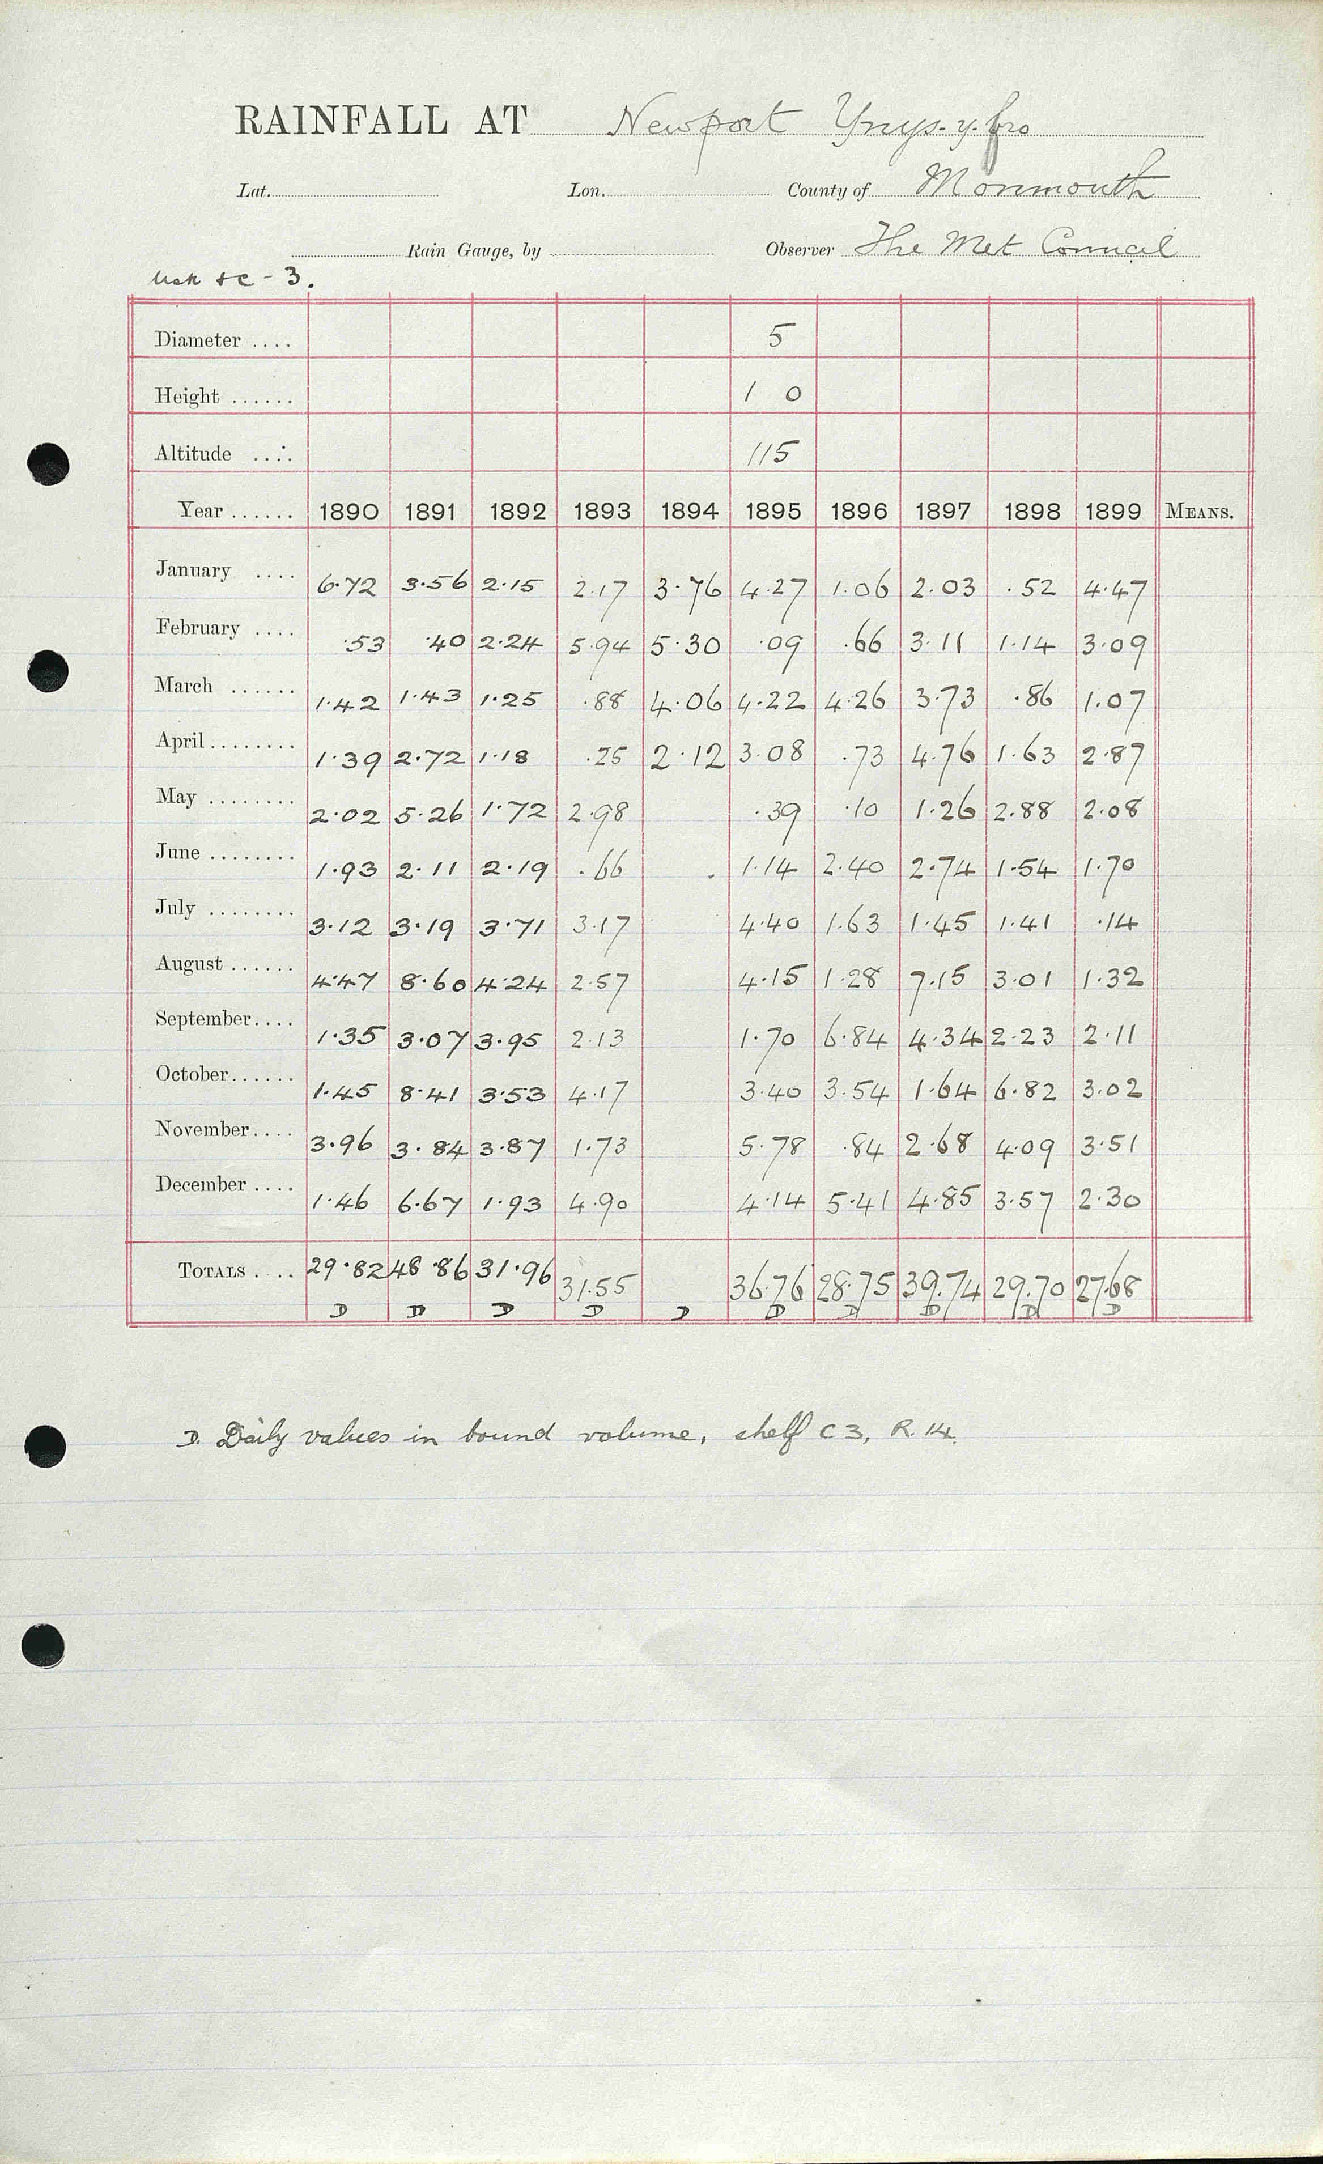 RAINFALL AT Newport Ynys-y-fro
Lat. Lon. County of Monmouth
Rain Gauge, by Observer The Met Council
Usk &c - 3.
Diameter .... 5
Height ...... 1 0
Altitude .... 115
Year ...... 1890 1891 1892 1893 1894 1895 1896 1897 1898 1899 MEANS.
January .... 6.72 3.56 2.15 2.17 3.76 4.27 1.06 2.03 .52 4.47
February .... .53 .40 2.24 5.94 5.30 .09 .66 3.11 1.14 3.09
March ...... 1.42 1.43 1.25 .88 4.06 4.22 4.26 3.73 .86 1.07
April ........ 1.39 2.72 1.18 .25 2.12 3.08 .73 4.76 1.63 2.87
May ........ 2.02 5.26 1.72 2.98 .39 .10 1.26 2.88 2.08
June ........ 1.93 2.11 2.19 .66 . 1.14 2.40 2.74 1.54 1.70
July ........ 3.12 3.19 3.71 3.17 4.40 1.63 1.45 1.41 .14
August ...... 4.47 8.60 4.24 2.57 4.15 1.28 7.15 3.01 1.32
September.... 1.35 3.07 3.95 2.13 1.70 6.84 4.34 2.23 2.11
October...... 1.45 8.41 3.53 4.17 3.40 3.54 1.64 6.82 3.02
November.... 3.96 3.84 3.87 1.73 5.78 .84 2.68 4.09 3.51
December .... 1.46 6.67 1.93 4.90 4.14 5.41 4.85 3.57 2.30
TOTALS .... 29.82 48.86 31.96 31.55 36.76 28.75 39.74 29.70 27.68
D D D D D D D D D D
D. Daily values in bound volume, shelf C3, R. 14.